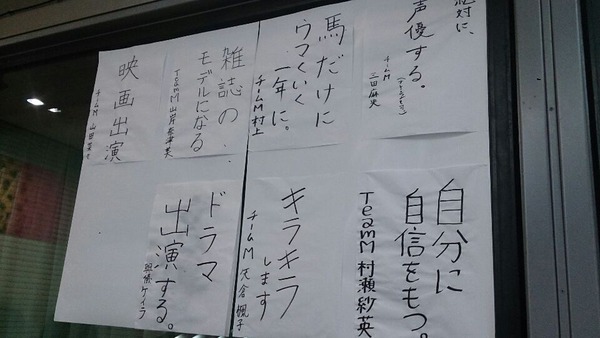 絶対に、
声優する。
チームM
三田麻央
馬だけに
ウマくいく
一年に。
チームM 村上
雑誌の
モデルになる
TeamM 山岸奈津美
映画出演
チームM 山田菜々
自分に
自信をもつ。
TeamM 村瀬紗英
キラキラ
します
チームM 矢倉楓子
ドラマ
出演する。
與儀ケイラ